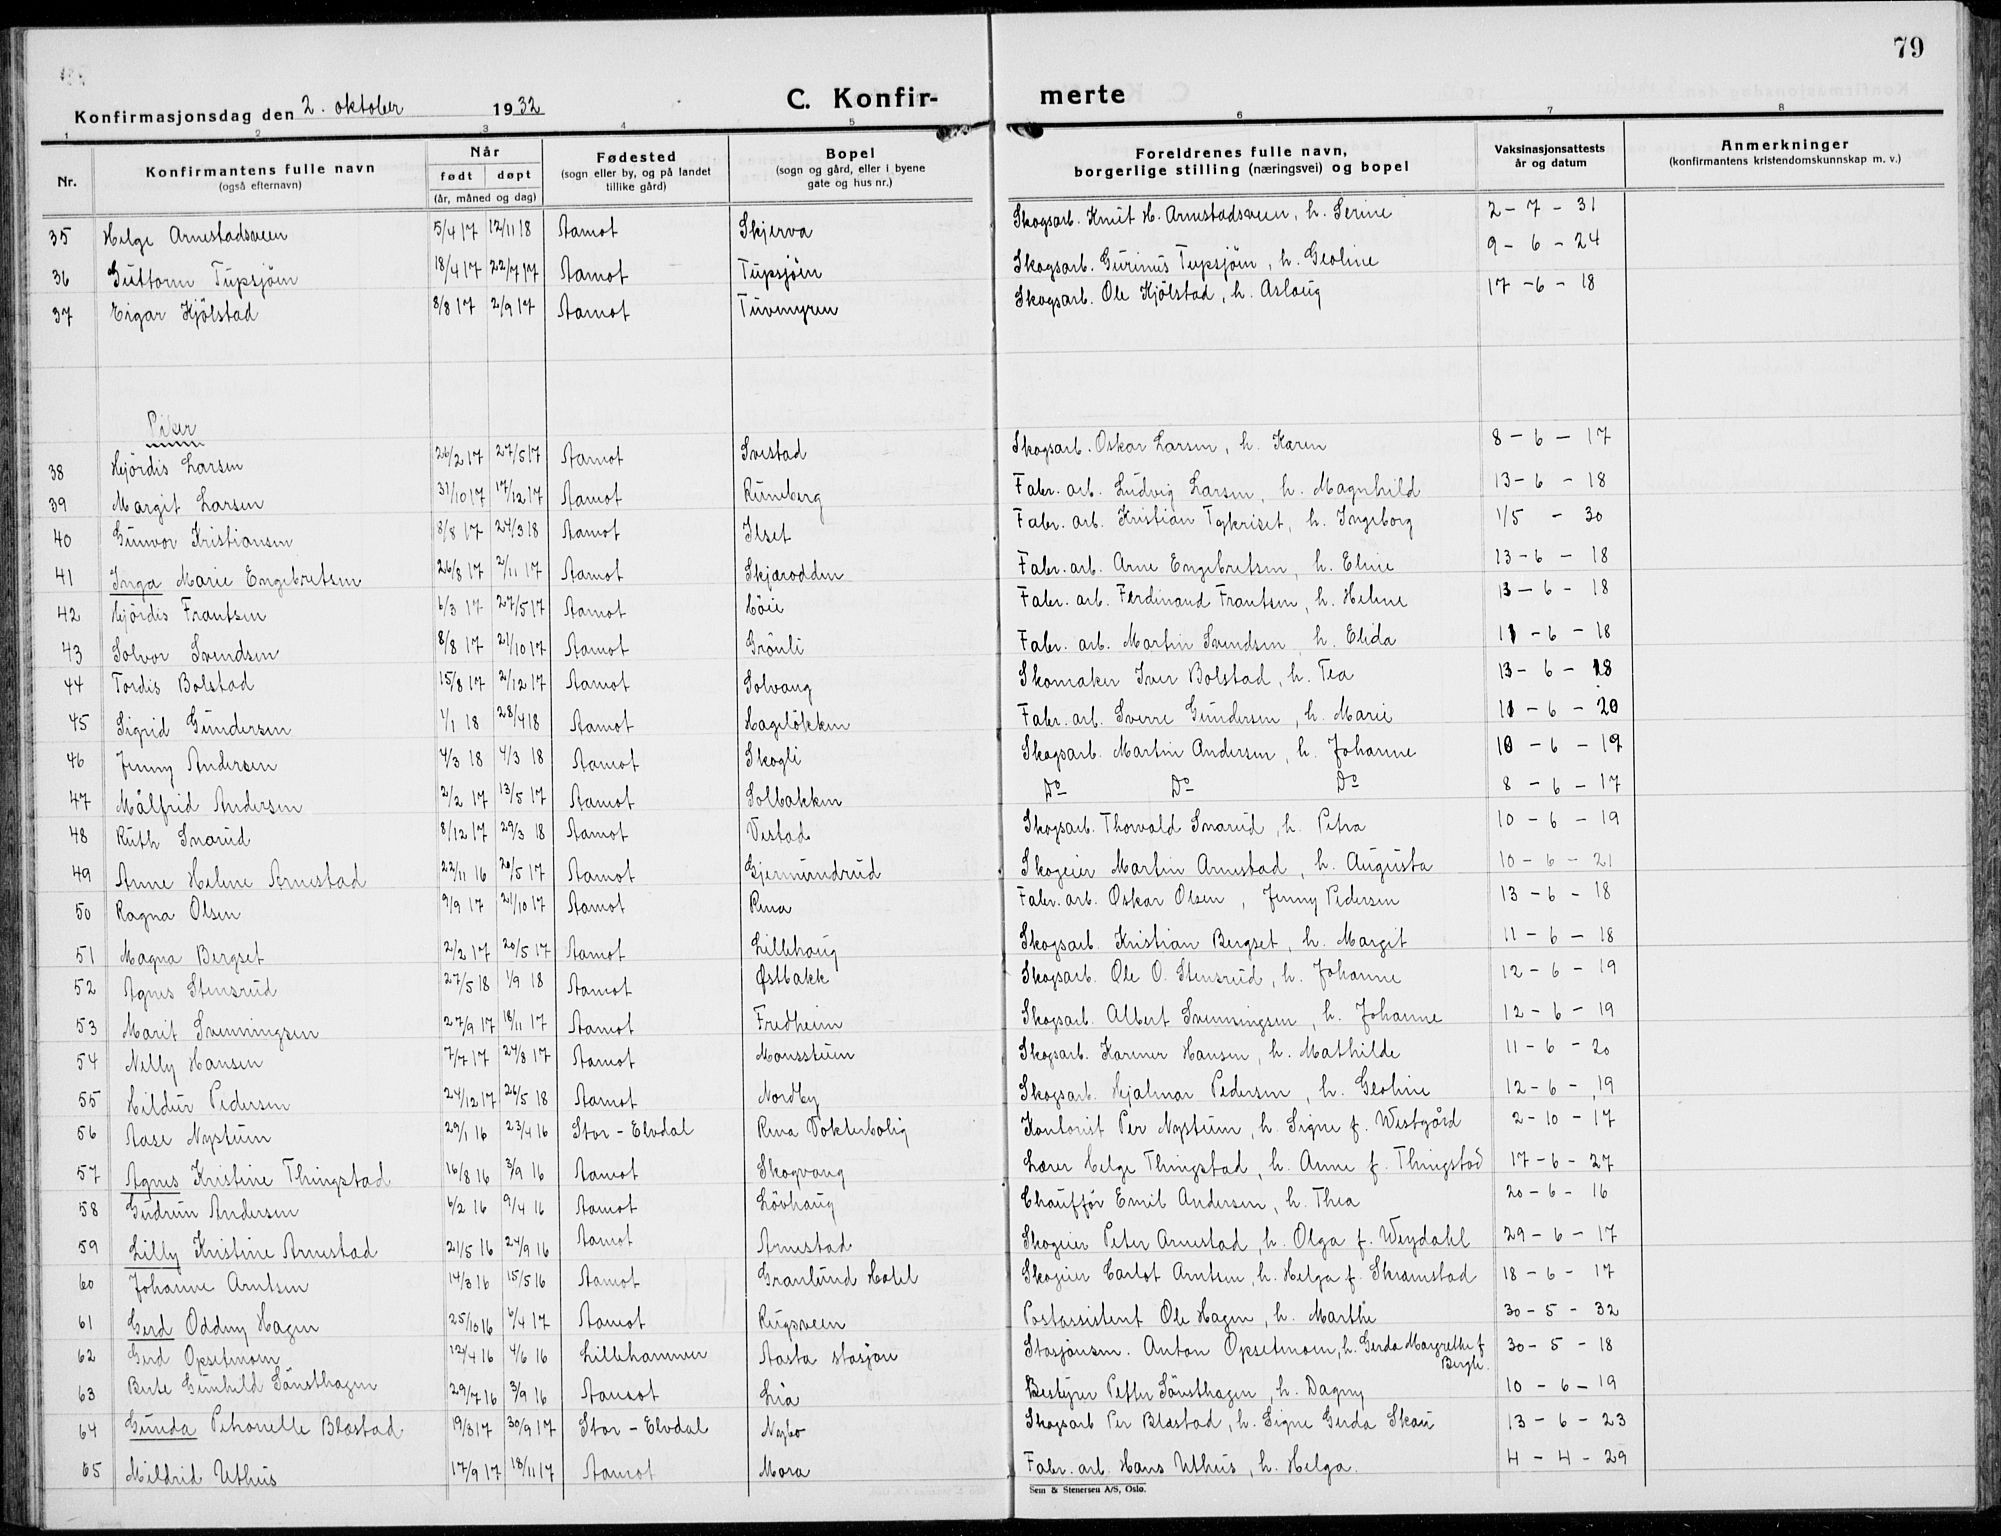 79
Konfirmasjonsdag den 2. oktober 1932 C. Konfir- merte
1 2 3 4 5 6 7 8
Nr. Konfirmantens fulle navn (også efternavn) Når født døpt (år, måned og dag) Fødested (sogn eller by, og på landet tillike gård) Bopel (sogn og gård, eller i byene gate og hus nr.) Foreldrenes fulle navn, borgerlige stilling (næringsvei) og bopel Vaksinasjonsattests år og datum Anmerkninger (konfirmantens kristendomskunnskap m. v.)
35 Helge Arnestadsveen 5/4 17 12/11 18 Aamot Skjerva Skogsarb. Knut H. Arnestadsveen, h. Serine 2 - 7 - 31
36 Guttorm Tupsjöen 18/4 17 22/7 17 Aamot Tupsjöen Skogsarb. Gurinus Tupsjöen, h. Geoline 9 - 6 - 24
37 Eigar Kjölstad 8/8 17 2/9 17 Aamot Tuvmyren Skogsarb. Ole Kjölstad, h. Aslaug 17 - 6 - 18
Piker
38 Hjördis Larsen 26/2 17 27/5 17 Aamot Svestad Skogsarb. Oskar Larsen, h. Karen 8 - 6 - 17
39 Margit Larsen 31/10 17 17/12 17 Aamot Runeberg Fabr. arb. Ludvig Larsen, h. Magnhild 13 - 6 - 18
40 Gunvor Kristiansen 8/8 17 24/3 18 Aamot Ilset Fabr. arb. Kristian Tykriset, h. Ingeborg 1/5 - 30
41 Inga Marie Engebretsen 26/8 17 2/11 17 Aamot Skjærodden Fabr. arb. Arne Engebretsen, h. Eline 13 - 6 - 18
42 Hjördis Frantsen 6/3 17 27/5 17 Aamot Höie Fabr. arb. Ferdinand Frantsen, h. Helene 13 - 6 - 18
43 Solvor Svendsen 8/8 17 21/10 17 Aamot Grönli Fabr. arb. Martin Svendsen, h. Elida 11 - 6 - 18
44 Tordis Bolstad 15/8 17 2/12 17 Aamot Solvang Skomaker Iver Bolstad, h. Tea 13 - 6 - 18
45 Sigrid Gundersen 1/1 18 28/4 18 Aamot Hagelökken Fabr. arb. Sverre Gundersen, h. Marie 11 - 6 - 20
46 Jenny Andersen 4/3 18 4/3 18 Aamot Skogli Skogsarb. Martin Andersen, h. Johanne 10 - 6 - 19
47 Målfrid Andersen 2/2 17 13/5 17 Aamot Solbakken Do Do Do 8 - 6 - 17
48 Ruth Snarud 8/12 17 29/3 18 Aamot Vestad Skogsarb. Thorvald Snarud, h. Petra 10 - 6 - 19
49 Anne Helene Arnestad 22/11 16 20/5 17 Aamot Gjermundrud Skogeier Martin Arnestad, h. Augusta 10 - 6 - 21
50 Ragna Olsen 9/9 17 21/10 17 Aamot Rena Fabr. arb. Oskar Olsen, Jenny Pedersen 13 - 6 - 18
51 Magna Bergset 2/2 17 20/5 17 Aamot Lillehaug Skogsarb. Kristian Bergset, h. Margit 11 - 6 - 18
52 Agnes Stensrud 27/5 18 1/9 18 Aamot Østbakk Skogsarb. Ole O. Stensrud, h. Johanne 12 - 6 - 19
53 Marit Svenningsen 27/9 17 18/11 17 Aamot Fredheim Skogsarb. Albert Svenningsen, h. Johanne 12 - 6 - 19
54 Nelly Hansen 7/7 17 24/8 17 Aamot Monsstuen Skogsarb. Karener Hansen, h. Mathilde 11 - 6 - 20
55 Hildur Pedersen 24/12 17 26/5 18 Aamot Nordby Skogsarb. Hjalmar Pedersen, h. Geoline 12 - 6 - 19
56 Aase Nystuen 29/1 16 23/4 16 Stor-Elvdal Rena Vokterbolig Kontorist Per Nystuen, h. Signe f. Westgård 2 - 10 - 17
57 Agnes Kristine Thingstad 16/8 16 3/9 16 Aamot Skogvang Lærer Helge Thingstad, h. Anne f. Thingstad 17 - 6 - 27
58 Gudrun Andersen 6/2 16 9/4 16 Aamot Lövhaug Chaufför Emil Andersen, h. Thea 20 - 6 - 16
59 Lilly Kristine Arnestad 21/5 16 24/9 16 Aamot Arnestad Skogeier Peter Arnestad, h. Olga f. Weydahl 29 - 6 - 17
60 Johanne Arntsen 14/3 16 15/5 16 Aamot Granlund Hotel Skogeier Carlot Arntsen, h. Helga f. Skramstad 18 - 6 - 17
61 Gerd Oddny Hagen 25/10 16 6/4 17 Aamot Rugsveen Postassistent Ole Hagen, h. Marthe 30 - 5 - 32
62 Gerd Opsetmoen 12/4 16 4/6 16 Lillehammer Aasta stasjon Stasjonsm. Anton Opsetmoen, h. Gerda Margrethe f. Bergli. 30 - 5 - 18
63 Berte Gunhild Sönsthagen 29/7 16 3/9 16 Aamot Lia Bestyrer Petter Sönsthagen, h. Dagny 10 - 6 - 19
64 Gunda Petronelle Blæstad 19/8 17 30/9 17 Stor-Elvdal Nybo Skogsarb Per Blæstad, h. Signe Gerda Skau 13 - 6 - 23
65 Mildrid Uthus 17/9 17 18/11 17 Aamot Mora Fabr. arb. Hans Uthus, h. Helga. 4 - 4 - 29
Sem & Stenersen A/S, Oslo.